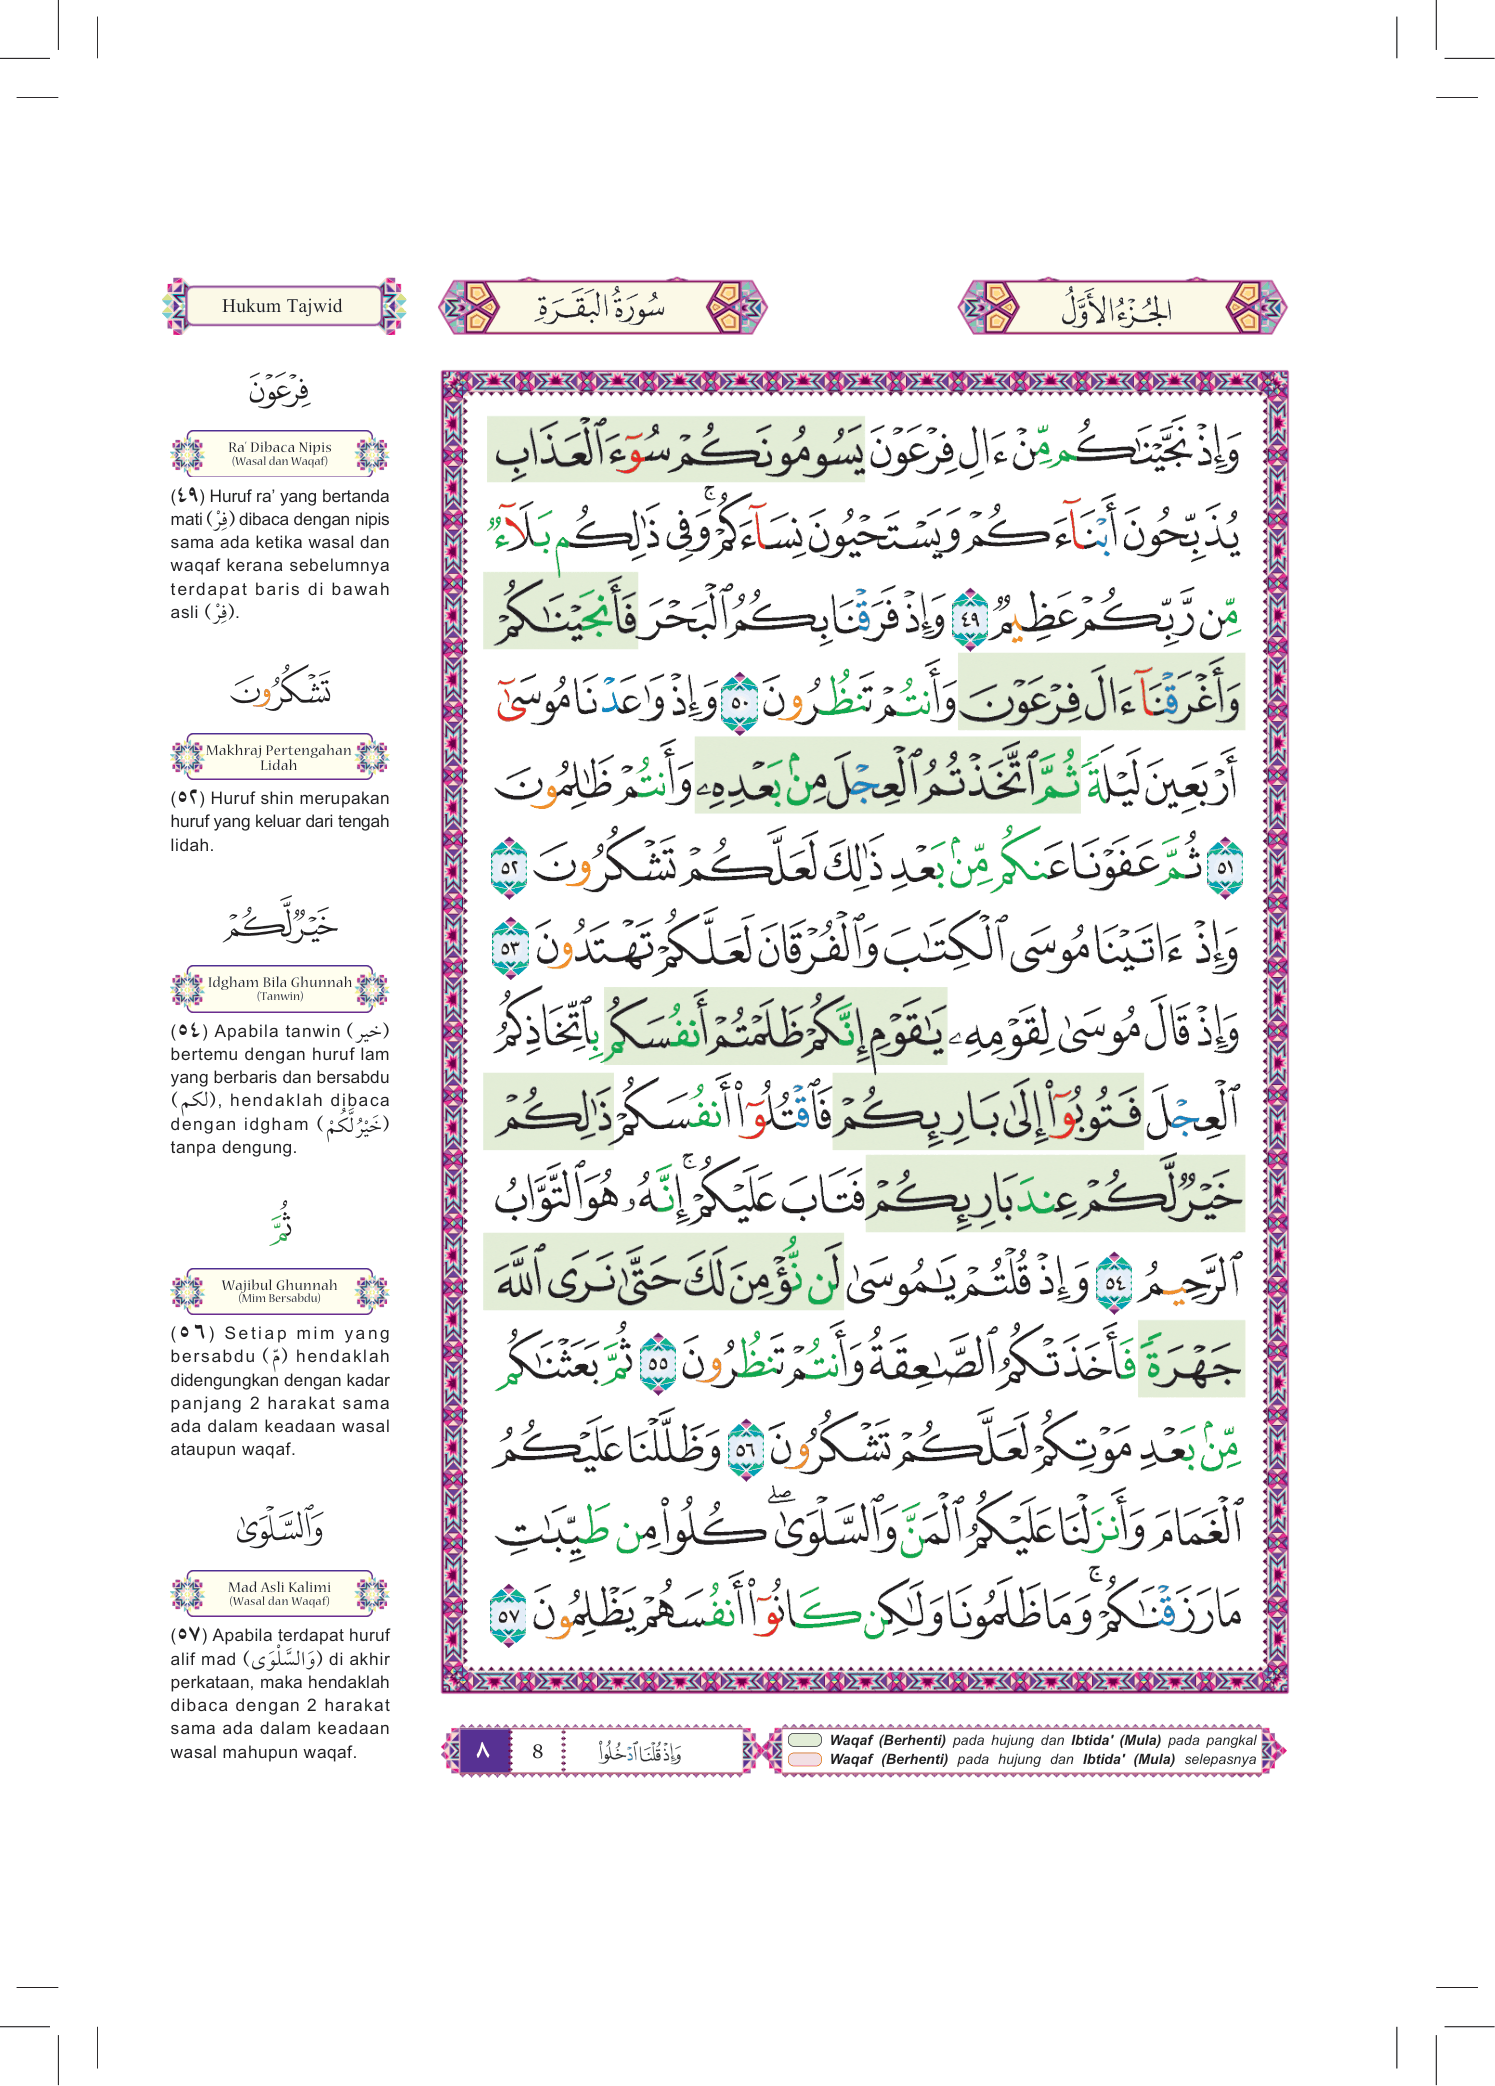 Hukum Tajwid
سُورَةُ الْبَقَرَةِ
الْجُزْءُ الْأَوَّلُ
فِرْعَوْنَ
Ra' Dibaca Nipis
(Wasal dan Waqaf)
(٤٩) Huruf ra’ yang bertanda
mati (فِرْ) dibaca dengan nipis
sama ada ketika wasal dan
waqaf kerana sebelumnya
terdapat baris di bawah
asli (فِرْ).
تَشْكُرُونَ
Makhraj Pertengahan
Lidah
(٥٢) Huruf shin merupakan
huruf yang keluar dari tengah
lidah.
خَيْرٌ لَّكُمْ
Idgham Bila Ghunnah
(Tanwin)
(٥٤) Apabila tanwin (خير)
bertemu dengan huruf lam
yang berbaris dan bersabdu
(لكم), hendaklah dibaca
dengan idgham (خَيْرٌ لَّكُمْ)
tanpa dengung.
ثُمَّ
Wajibul Ghunnah
(Mim Bersabdu)
(٥٦) Setiap mim yang
bersabdu (مّ) hendaklah
didengungkan dengan kadar
panjang 2 harakat sama
ada dalam keadaan wasal
ataupun waqaf.
وَٱلسَّلْوَىٰ
Mad Asli Kalimi
(Wasal dan Waqaf)
(٥٧) Apabila terdapat huruf
alif mad (وَالسَّلْوَى) di akhir
perkataan, maka hendaklah
dibaca dengan 2 harakat
sama ada dalam keadaan
wasal mahupun waqaf.
وَإِذْ نَجَّيْنَـٰكُم مِّنْ ءَالِ فِرْعَوْنَ يَسُومُونَكُمْ سُوٓءَ ٱلْعَذَابِ
يُذَبِّحُونَ أَبْنَآءَكُمْ وَيَسْتَحْيُونَ نِسَآءَكُمْ ۚ وَفِى ذَٰلِكُم بَلَآءٌ
مِّن رَّبِّكُمْ عَظِيمٌ ٤٩ وَإِذْ فَرَقْنَا بِكُمُ ٱلْبَحْرَ فَأَنجَيْنَـٰكُمْ
وَأَغْرَقْنَآ ءَالَ فِرْعَوْنَ وَأَنتُمْ تَنظُرُونَ ٥٠ وَإِذْ وَٰعَدْنَا مُوسَىٰٓ
أَرْبَعِينَ لَيْلَةً ثُمَّ ٱتَّخَذْتُمُ ٱلْعِجْلَ مِنۢ بَعْدِهِۦ وَأَنتُمْ ظَـٰلِمُونَ
٥١ ثُمَّ عَفَوْنَا عَنكُم مِّنۢ بَعْدِ ذَٰلِكَ لَعَلَّكُمْ تَشْكُرُونَ ٥٢
وَإِذْ ءَاتَيْنَا مُوسَى ٱلْكِتَـٰبَ وَٱلْفُرْقَانَ لَعَلَّكُمْ تَهْتَدُونَ ٥٣
وَإِذْ قَالَ مُوسَىٰ لِقَوْمِهِۦ يَـٰقَوْمِ إِنَّكُمْ ظَلَمْتُمْ أَنفُسَكُم بِٱتِّخَاذِكُمُ
ٱلْعِجْلَ فَتُوبُوٓا۟ إِلَىٰ بَارِئِكُمْ فَٱقْتُلُوٓا۟ أَنفُسَكُمْ ذَٰلِكُمْ
خَيْرٌ لَّكُمْ عِندَ بَارِئِكُمْ فَتَابَ عَلَيْكُمْ ۚ إِنَّهُۥ هُوَ ٱلتَّوَّابُ
ٱلرَّحِيمُ ٥٤ وَإِذْ قُلْتُمْ يَـٰمُوسَىٰ لَن نُّؤْمِنَ لَكَ حَتَّىٰ نَرَى ٱللَّهَ
جَهْرَةً فَأَخَذَتْكُمُ ٱلصَّـٰعِقَةُ وَأَنتُمْ تَنظُرُونَ ٥٥ ثُمَّ بَعَثْنَـٰكُم
مِّنۢ بَعْدِ مَوْتِكُمْ لَعَلَّكُمْ تَشْكُرُونَ ٥٦ وَظَلَّلْنَا عَلَيْكُمُ
ٱلْغَمَامَ وَأَنزَلْنَا عَلَيْكُمُ ٱلْمَنَّ وَٱلسَّلْوَىٰ ۖ كُلُوا۟ مِن طَيِّبَـٰتِ
مَا رَزَقْنَـٰكُمْ ۚ وَمَا ظَلَمُونَا وَلَـٰكِن كَانُوٓا۟ أَنفُسَهُمْ يَظْلِمُونَ ٥٧
٨ 8 وَإِذْ قُلْنَا ٱدْخُلُوا۟
Waqaf (Berhenti) pada hujung dan Ibtida' (Mula) pada pangkal
Waqaf (Berhenti) pada hujung dan Ibtida' (Mula) selepasnya